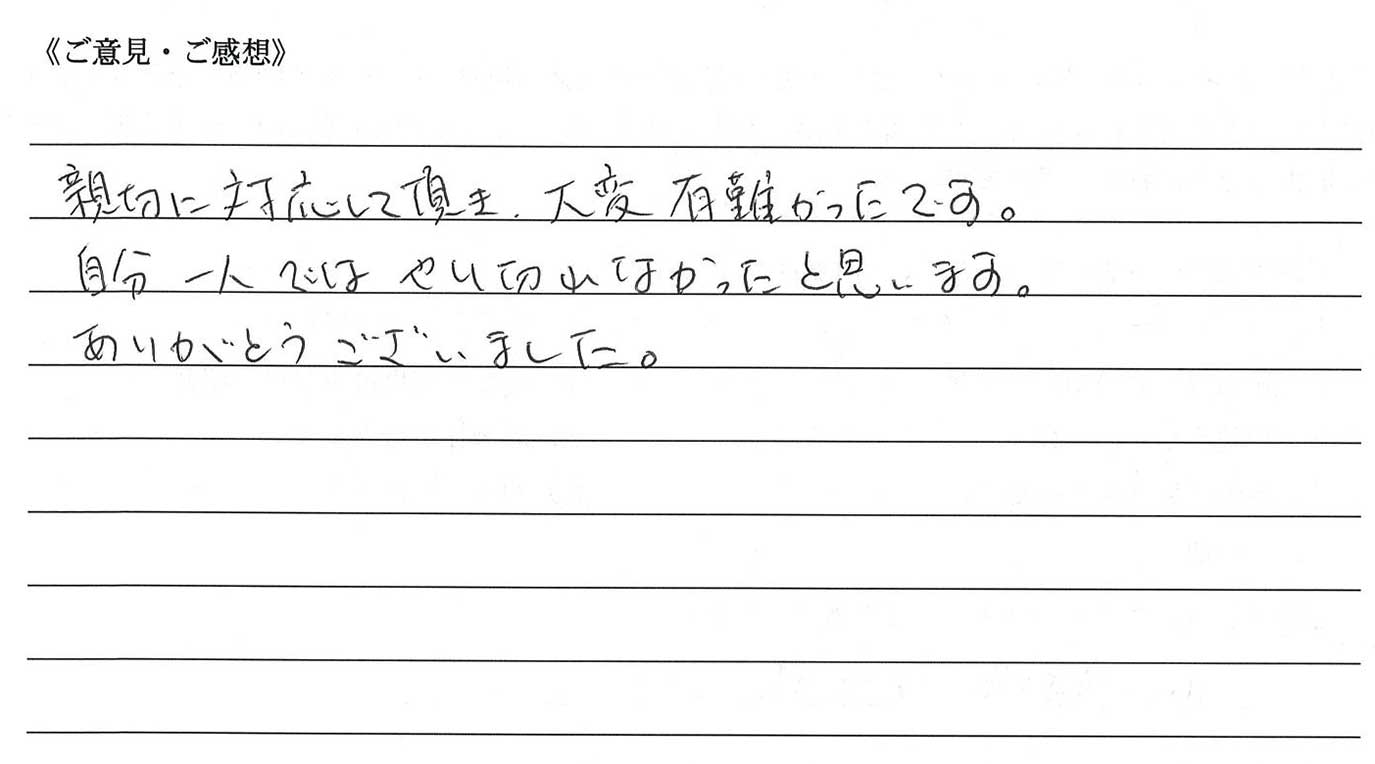 《ご意見・ご感想》
親切に対応して頂き、大変有難かったです。
自分一人ではやり切れなかったと思います。
ありがとうございました。